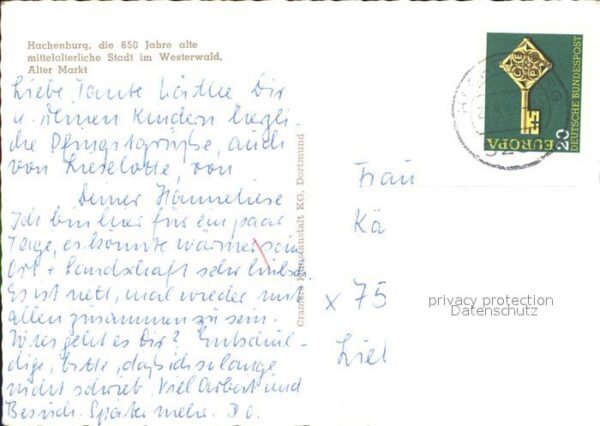 Hachenburg, die 650 Jahre alte
mittelalterliche Stadt im Westerwald.
Alter Markt
Liebe Tante Käthe Dir
u. Deinen Kindern herzli-
che Pfingstgrüße, auch
von Lieselotte, von
Deiner Hanneliese
Ich bin hier für ein paar
Tage, es könnte wärmer sein
Ort + Landschaft sehr
Es ist nett, mal wieder mit
allen zusammen zu sein.
Wies geht es Dir? Entschul-
dige, bitte, daß ich so lange
nicht schrieb. Viel Arbeit und
Besuch. Später mehr. D.O.
Cramers Kunstanstalt KG, Dortmund
EUROPA
DEUTSCHE BUNDESPOST
20
52
Frau
Kä
x 75
privacy protection
Datenschutz